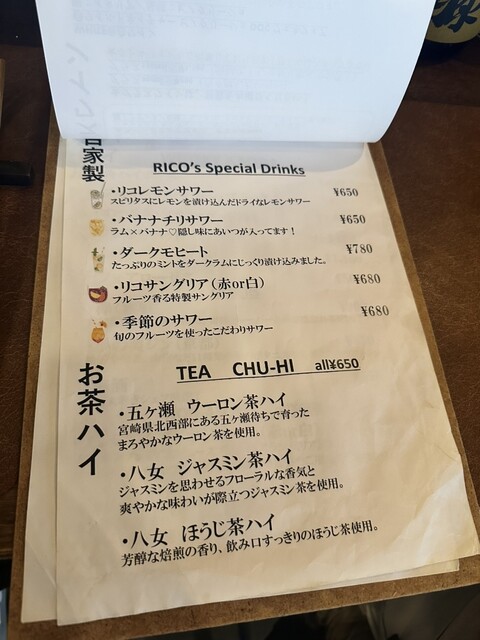 自家製
RICO's Special Drinks
・リコレモンサワー ¥650
スピリタスにレモンを漬け込んだドライなレモンサワー
・バナナチリサワー ¥650
ラム×バナナ♡隠し味にあいつが入ってます！
・ダークモヒート ¥780
たっぷりのミントをダークラムにじっくり漬け込みました。
・リコサングリア（赤or白） ¥680
フルーツ香る特製サングリア
・季節のサワー ¥680
旬のフルーツを使ったこだわりサワー
お茶ハイ
TEA CHU-HI all¥650
・五ヶ瀬 ウーロン茶ハイ
宮崎県北西部にある五ヶ瀬待ちで育った
まろやかなウーロン茶を使用。
・八女 ジャスミン茶ハイ
ジャスミンを思わせるフローラルな香気と
爽やかな味わいが際立つジャスミン茶を使用。
・八女 ほうじ茶ハイ
芳醇な焙煎の香り、飲み口すっきりのほうじ茶使用。